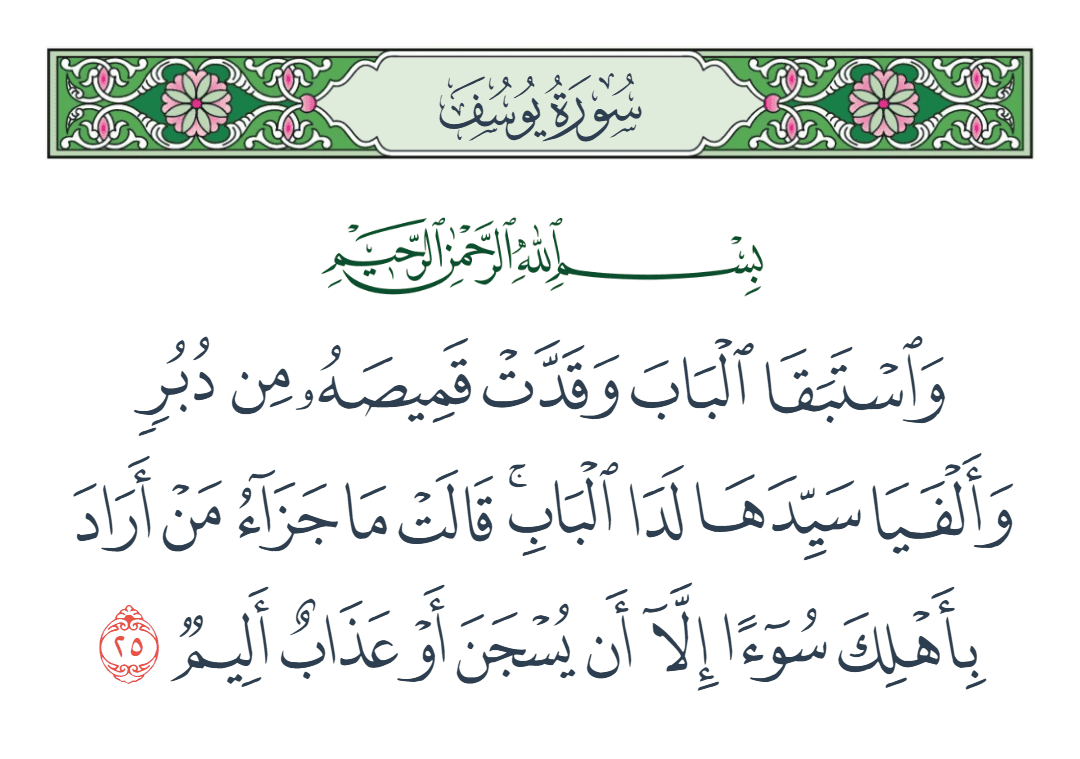 سُورَةُ يُوسُفَ
بِسْمِ ٱللَّهِ ٱلرَّحْمَٰنِ ٱلرَّحِيمِ
وَٱسْتَبَقَا ٱلْبَابَ وَقَدَّتْ قَمِيصَهُۥ مِن دُبُرٍ
وَأَلْفَيَا سَيِّدَهَا لَدَا ٱلْبَابِ ۚ قَالَتْ مَا جَزَآءُ مَنْ أَرَادَ
بِأَهْلِكَ سُوٓءًا إِلَّآ أَن يُسْجَنَ أَوْ عَذَابٌ أَلِيمٌ ٢٥